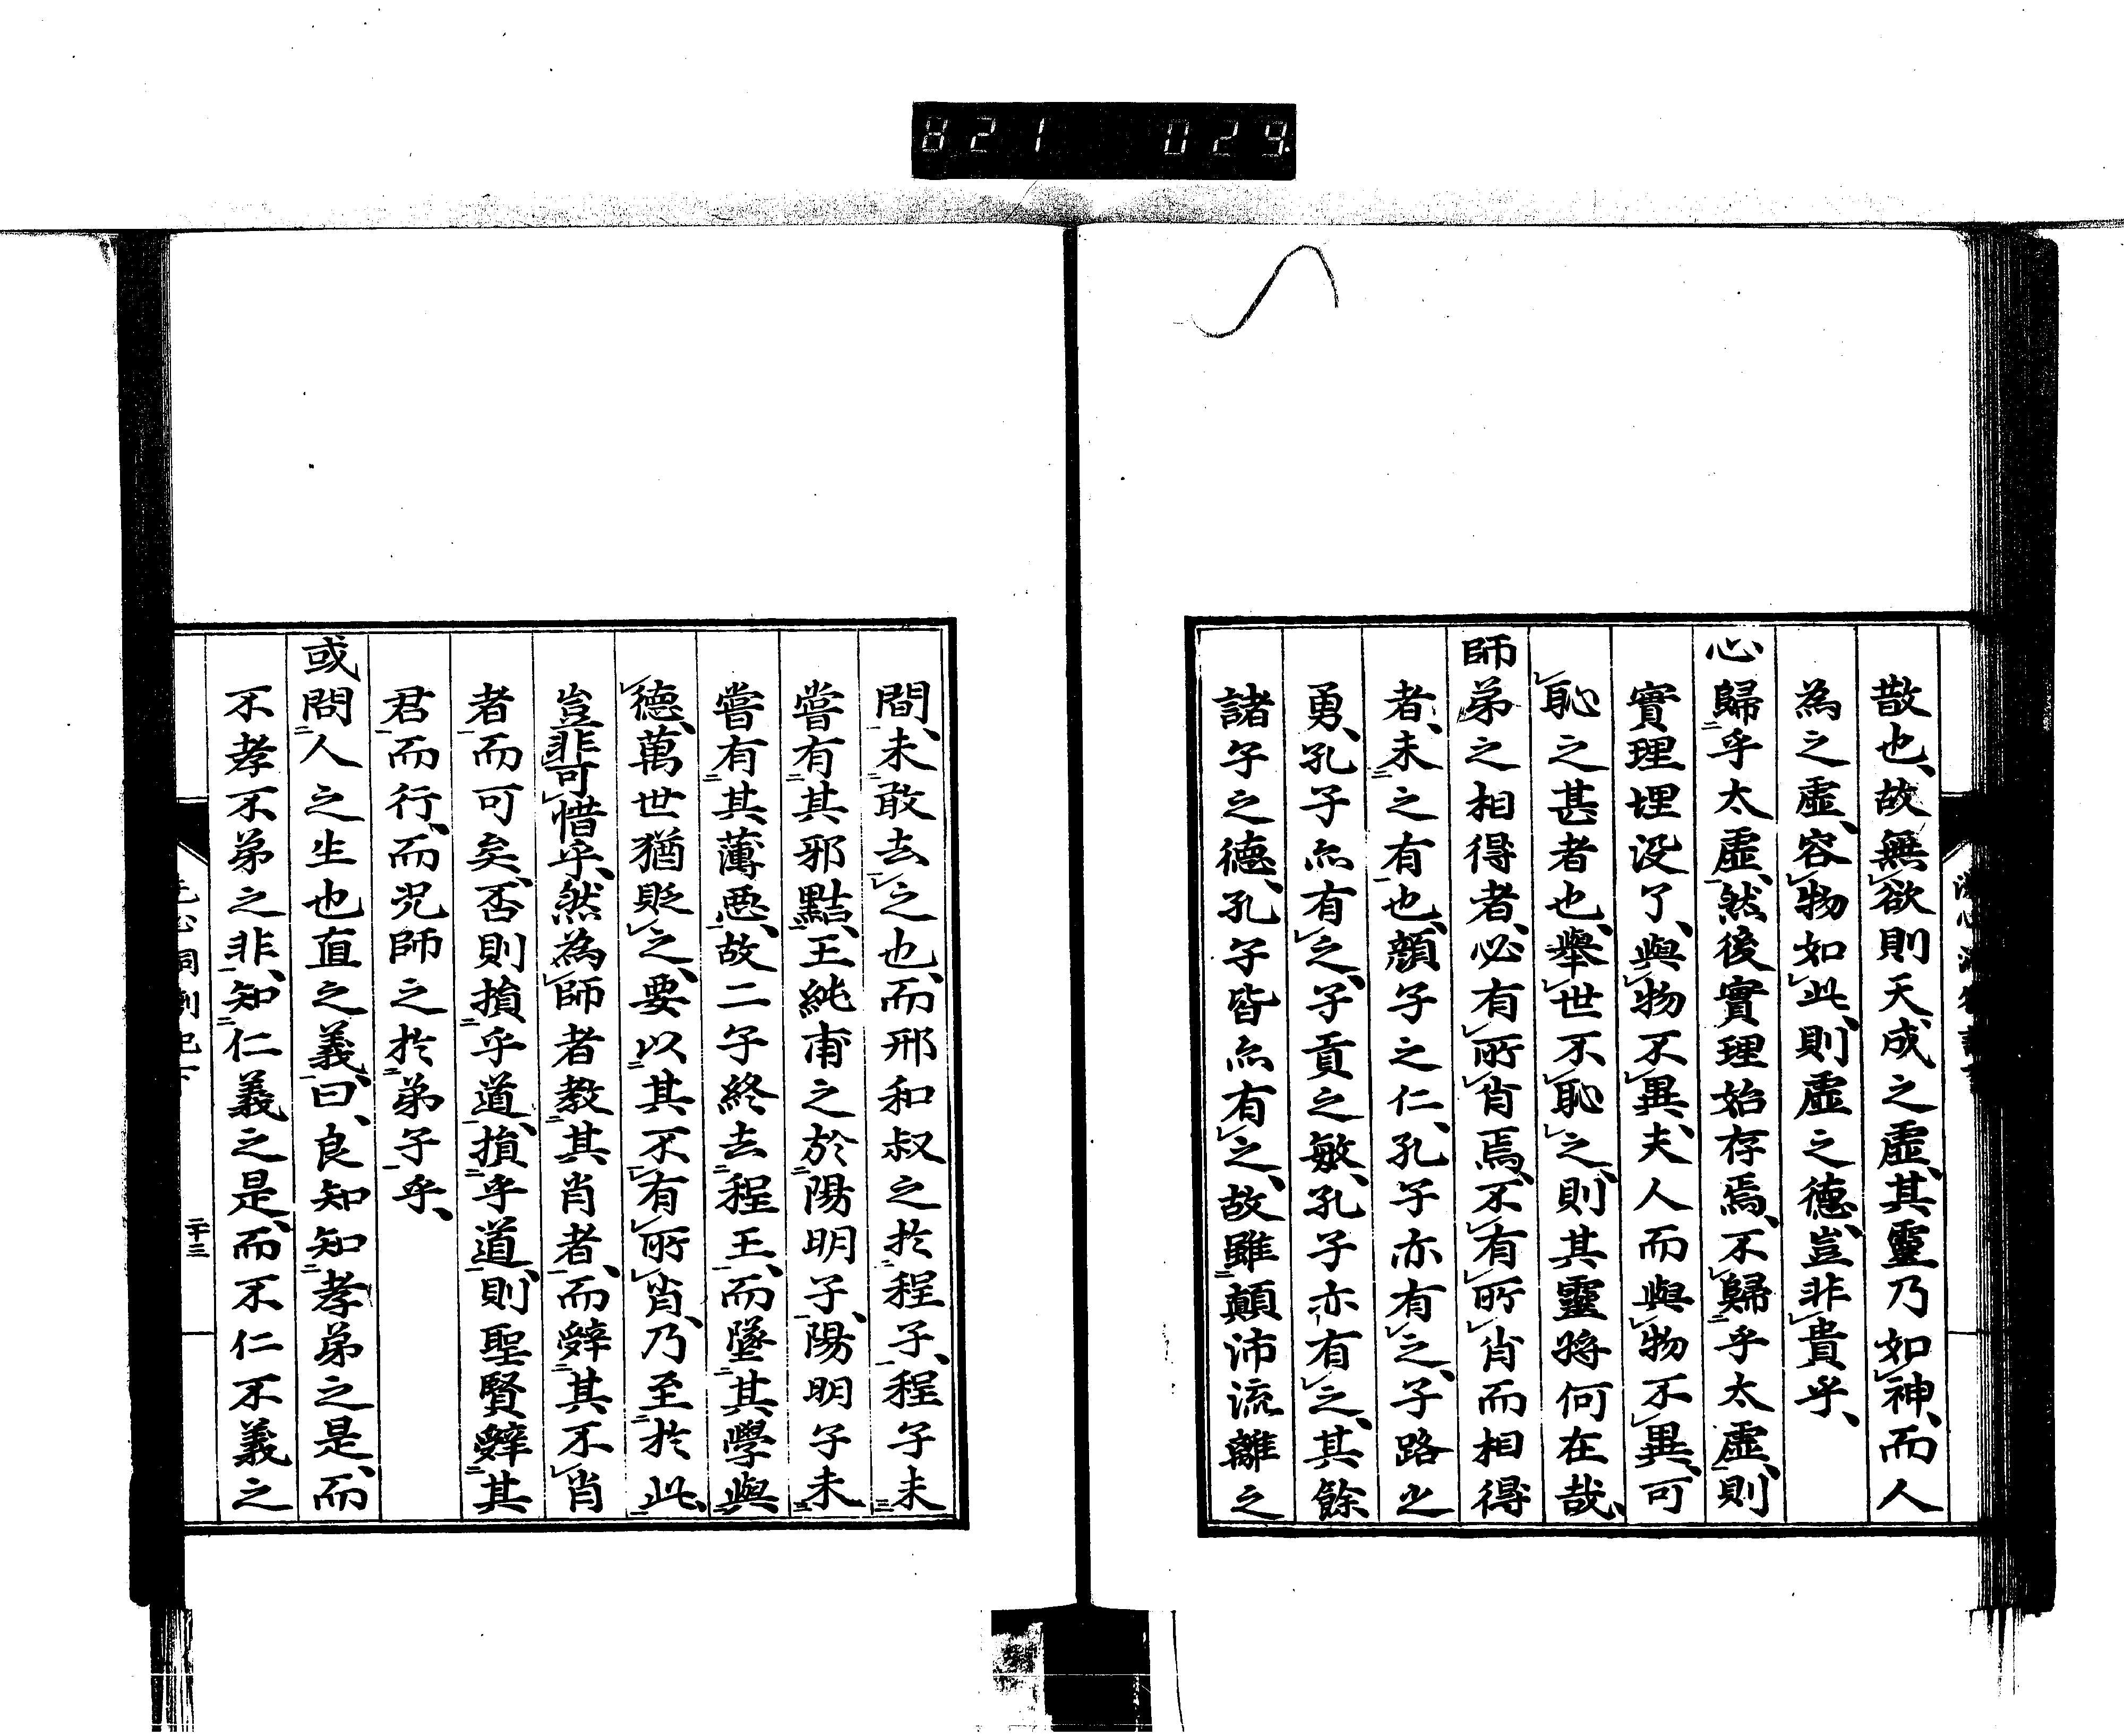 821 029
散也、故無欲則天成之虛、其靈乃如神、而人
為之虛、容物如此、則虛之德、豈非貴乎、
心歸乎太虛、然後實理始存焉、不歸乎太虛、則
實理埋没了、與物不異、夫人而與物不異、可
恥之甚者也、舉世不恥之、則其靈將何在哉、
師弟之相得者、必有所肖焉、不有所肖而相得
者、未之有也、顏子之仁、孔子亦有之、子路之
勇、孔子亦有之、子貢之敏、孔子亦有之、其餘
諸子之德、孔子皆亦有之、故雖顛沛流離之
間、未敢去之也、而邢和叔之於程子、程子未
嘗有其邪黠、王純甫之於陽明子、陽明子未
嘗有其薄惡、故二子終去程王、而墜其學與
德、萬世猶貶之、要以其不有所肖、乃至於此、
豈非可惜乎、然為師者教其肖者、而辭其不肖
者而可矣、否則損乎道、損乎道、則聖賢辭其
君而行、而況師之於弟子乎、
或問人之生也直之義、曰、良知知孝弟之是、而
不孝不弟之非、知仁義之是、而不仁不義之
洞劄記下
二十三